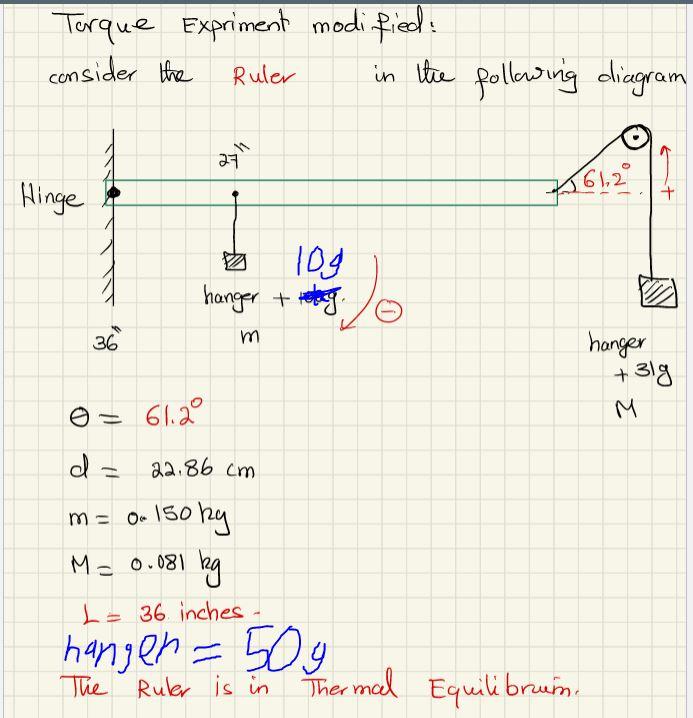 Torque Expriment modified:
consider the Ruler in the following diagram
27"
61.2°
+
Hinge
10g
hanger + g.
m
⊖
36"
hanger
+ 31g
M
θ = 61.2°
d = 22.86 cm
m = 0.150 kg
M = 0.081 kg
L = 36 inches -
hanger = 50g
The Ruler is in Thermal Equilibruim.